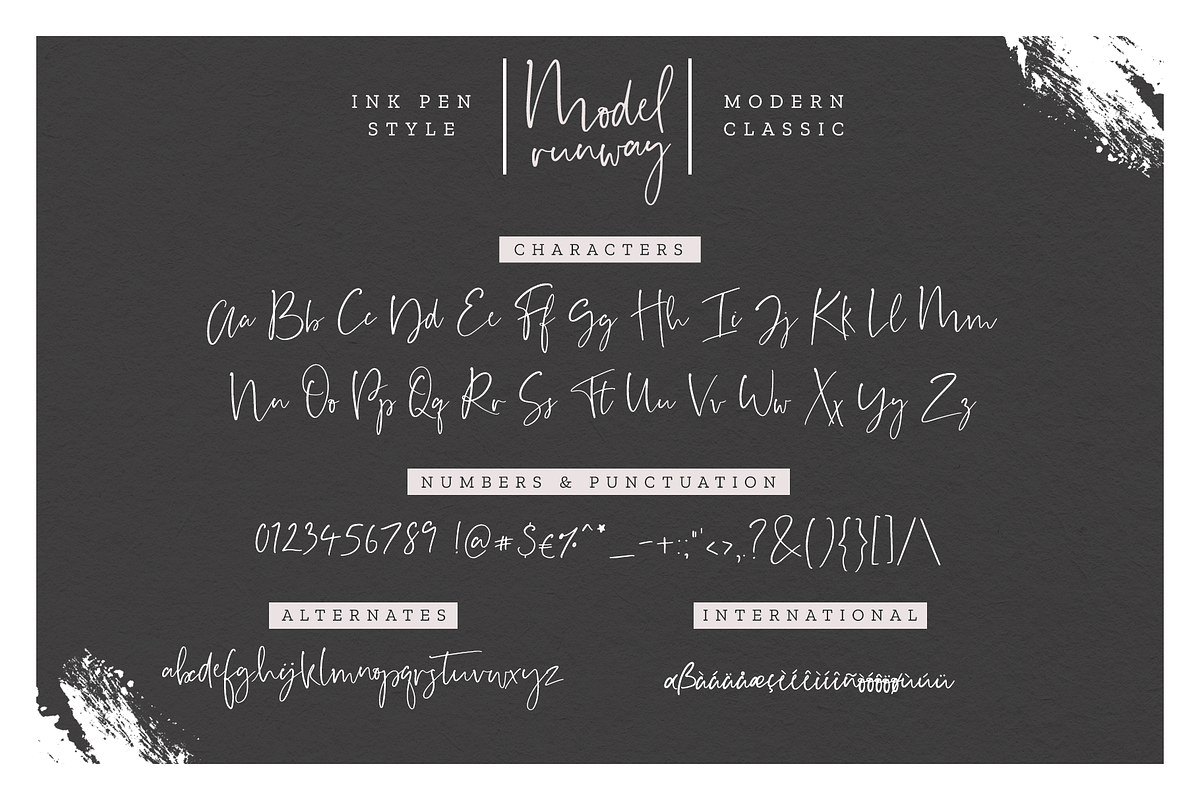 INK PEN
STYLE
Model
runway
MODERN
CLASSIC
CHARACTERS
Aa Bb Cc Dd Ee Ff Gg Hh Ii Jj Kk Ll Mm
Nn Oo Pp Qq Rr Ss Tt Uu Vv Ww Xx Yy Zz
NUMBERS & PUNCTUATION
0123456789 !@#$€%^*_-+:;"'<>,.?&(){}[]/\
ALTERNATES
abcdefghijklmnopqrstuvwxyz
INTERNATIONAL